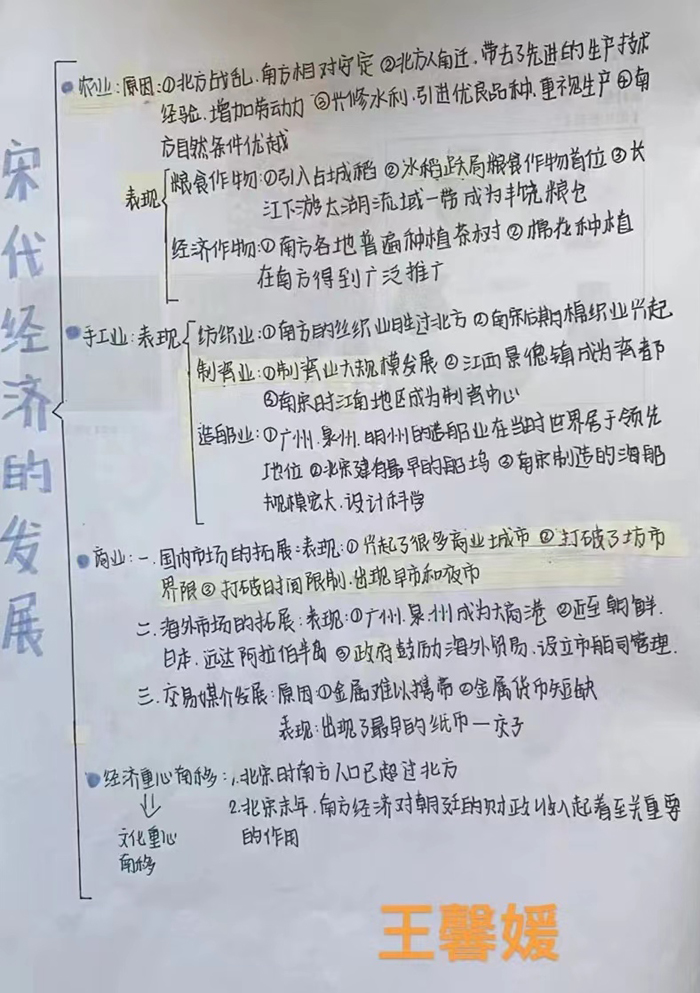 宋代经济的发展
农业:原因:①北方战乱,南方相对安定 ②北方人南迁,带去了先进的生产技术
经验,增加劳动力 ③兴修水利,引进优良品种,重视生产 ④南
方自然条件优越
表现
粮食作物:①引入占城稻 ②水稻跃居粮食作物首位 ③长
江下游太湖流域一带成为丰饶粮仓
经济作物:①南方各地普遍种植茶树 ②棉花种植
在南方得到广泛推广
手工业:表现
纺织业:①南方的丝织业胜过北方 ②南宋后期棉织业兴起
制瓷业:①制瓷业大规模发展 ②江西景德镇成为瓷都
③南宋时江南地区成为制瓷中心
造船业:①广州.泉州.明州的造船业在当时世界居于领先
地位 ②北宋建有最早的船坞 ③南宋制造的海船
规模宏大,设计科学
商业:一.国内市场的拓展:表现:①兴起了很多商业城市 ②打破了坊市
界限 ③打破时间限制.出现早市和夜市
二.海外市场的拓展:表现:①广州.泉州成为大商港 ②近至朝鲜.
日本.远达阿拉伯半岛 ③政府鼓励海外贸易,设立市舶司管理.
三.交易媒介发展:原因:①金属难以携带 ②金属货币短缺
表现:出现了最早的纸币—交子
经济重心南移:1.北宋时南方人口已超过北方
2.北宋末年,南方经济对朝廷的财政收入起着至关重要
的作用
文化重心
南移
王馨媛